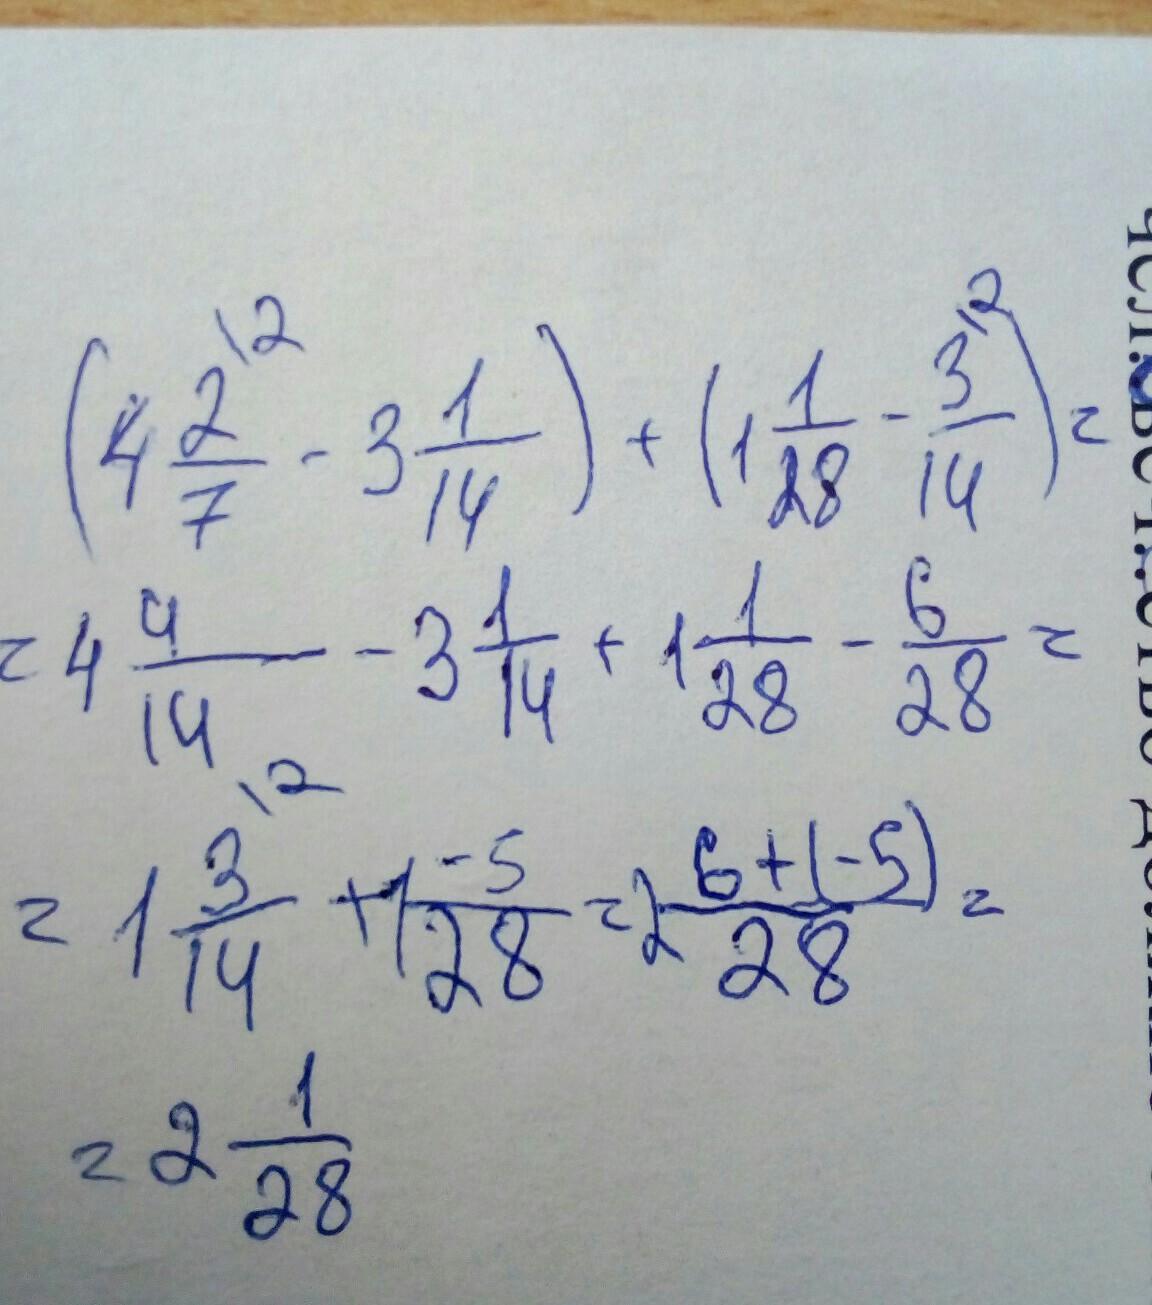 (4 2/7 \2 - 3 1/14) + (1 1/28 - 3/14 \2) =
= 4 4/14 - 3 1/14 + 1 1/28 - 6/28 =
= 1 3/14 \2 + 1 -5/28 = 2 6+(-5)/28 =
= 2 1/28